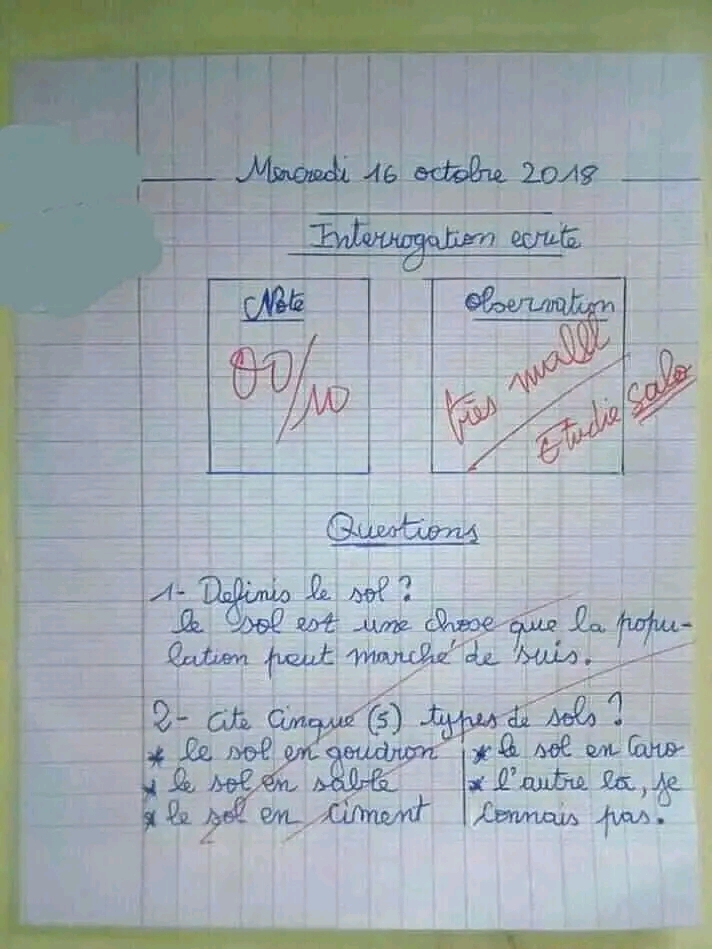 Mercredi 16 octobre 2018
Interrogation ecrite
Note
00/10
Observation
très malll
Etudie salo
Questions
1- Definis le sol ?
le sol est une chose que la popu-
lation peut marché de suis.
2- Cite Cinque (5) types de sols ?
* le sol en goudron
* le sol en sable
* le sol en Ciment
* le sol en Caro
* l'autre là, je
connais pas.